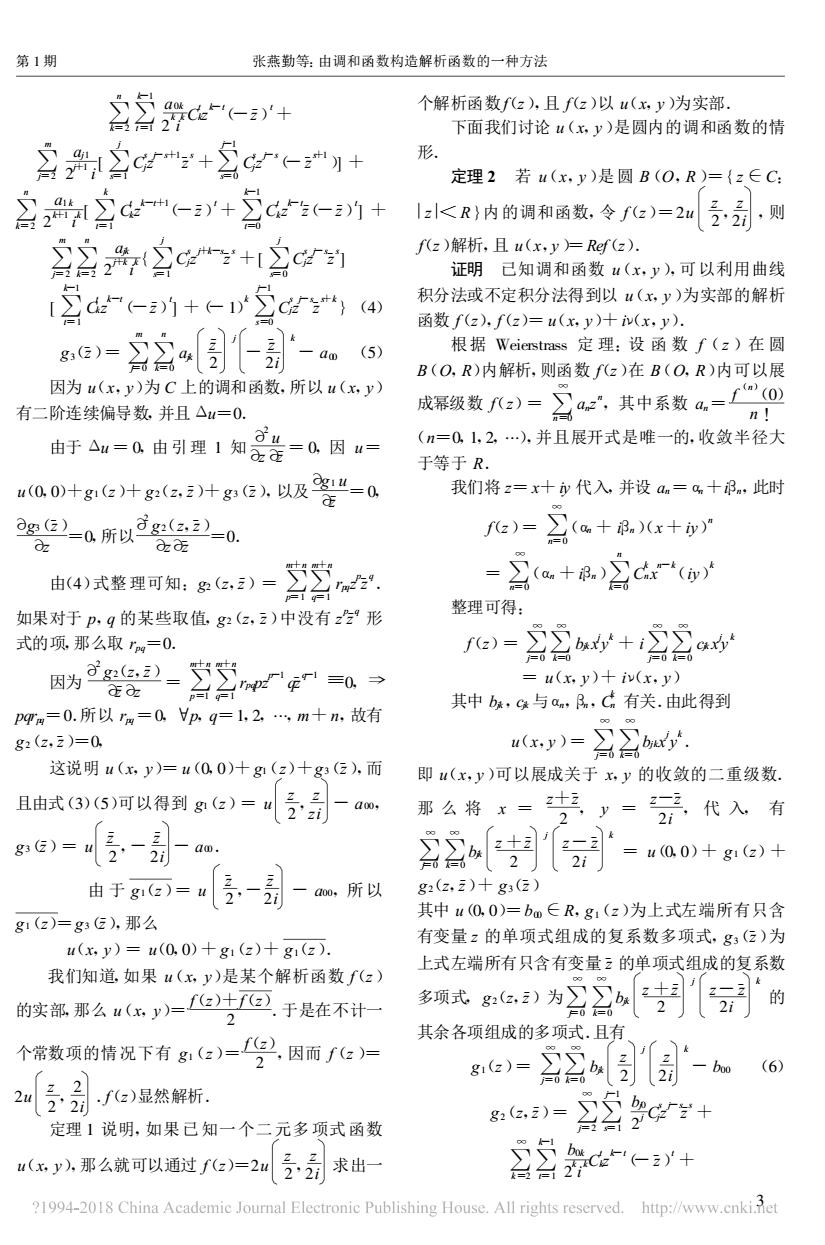 第 1 期
张燕勤等: 由调和函数构造解析函数的一种方法
∑_{k=2}^{n} ∑_{t=1}^{k-1} a_{0k}/(2^k i^k) C_k^t z^{k-t} (-z̄)^t +
∑_{j=2}^{m} a_{j1}/(2^{j+1} i) [∑_{s=1}^{j} C_j^s z^{j-s+1} z̄^s + ∑_{s=0}^{j-1} C_j^s z^{j-s} (-z̄^{s+1})] +
∑_{k=2}^{n} a_{1k}/(2^{k+1} i^k) [∑_{t=1}^{k} C_k^t z^{k-t+1} (-z̄)^t + ∑_{t=0}^{k-1} C_k^t z^{k-t} z̄ (-z̄)^t] +
∑_{j=2}^{m} ∑_{k=2}^{n} a_{jk}/(2^{j+k} i^k) {∑_{s=1}^{j} C_j^s z^{j+k-s} z̄^s + [∑_{s=0}^{j} C_j^s z^{j-s} z̄^s]
[∑_{t=1}^{k-1} C_k^t z^{k-t} (-z̄)^t] + (-1)^k ∑_{s=0}^{j-1} C_j^s z^{j-s} z̄^{s+k}} (4)
g₃(z̄) = ∑_{j=0}^{m} ∑_{k=0}^{n} a_{jk} (z̄/2)^j (-z̄/2i)^k - a₀₀ (5)
因为 u(x, y)为 C 上的调和函数, 所以 u(x, y)
有二阶连续偏导数, 并且 Δu=0.
由于 Δu = 0, 由引理 1 知 ∂²u/∂z∂z̄ = 0, 因 u=
u(0, 0)+g₁(z)+g₂(z, z̄)+g₃(z̄), 以及 ∂g₁u/∂z̄=0,
∂g₃(z̄)/∂z=0, 所以 ∂²g₂(z, z̄)/∂z∂z̄=0.
由(4)式整理可知: g₂(z, z̄) = ∑_{p=1}^{m+n} ∑_{q=1}^{m+n} r_{pq} z^p z̄^q.
如果对于 p, q 的某些取值, g₂(z, z̄)中没有 z^p z̄^q 形
式的项, 那么取 r_{pq}=0.
因为 ∂²g₂(z, z̄)/∂z̄∂z = ∑_{p=1}^{m+n} ∑_{q=1}^{m+n} r_{pq} p z^{p-1} q z̄^{q-1} ≡0, ⇒
pqr_{pq}=0. 所以 r_{pq}=0, ∀p, q=1, 2, …, m+n, 故有
g₂(z, z̄)=0,
这说明 u(x, y)=u(0, 0)+g₁(z)+g₃(z̄), 而
且由式(3)(5)可以得到 g₁(z) = u(z/2, z/zi) - a₀₀,
g₃(z̄) = u(z̄/2, -z̄/2i) - a₀₀.
由于 \overline{g₁(z)} = u(z̄/2, -z̄/2i) - a₀₀, 所以
\overline{g₁(z)}=g₃(z̄), 那么
u(x, y) = u(0, 0) + g₁(z) + \overline{g₁(z)}.
我们知道, 如果 u(x, y)是某个解析函数 f(z)
的实部, 那么 u(x, y)=(f(z)+\overline{f(z)})/2. 于是在不计一
个常数项的情况下有 g₁(z)=f(z)/2, 因而 f(z)=
2u(z/2, 2/2i). f(z)显然解析.
定理 1 说明, 如果已知一个二元多项式函数
u(x, y), 那么就可以通过 f(z)=2u(z/2, z/2i) 求出一
个解析函数f(z), 且 f(z)以 u(x, y)为实部.
下面我们讨论 u(x, y)是圆内的调和函数的情
形.
定理 2 若 u(x, y)是圆 B(O, R)={z∈C:
|z|<R}内的调和函数, 令 f(z)=2u(z/2, z/2i), 则
f(z)解析, 且 u(x, y)=Ref(z).
证明 已知调和函数 u(x, y), 可以利用曲线
积分法或不定积分法得到以 u(x, y)为实部的解析
函数 f(z), f(z)=u(x, y)+iν(x, y).
根据 Weierstrass 定理: 设函数 f(z)在圆
B(O, R)内解析, 则函数 f(z)在 B(O, R)内可以展
成幂级数 f(z) = ∑_{n=0}^{∞} a_n z^n, 其中系数 a_n=f^{(n)}(0)/n!
(n=0, 1, 2, …), 并且展开式是唯一的, 收敛半径大
于等于 R.
我们将 z=x+iy 代入, 并设 a_n=α_n+iβ_n, 此时
f(z) = ∑_{n=0}^{∞} (α_n + iβ_n)(x + iy)^n
= ∑_{n=0}^{∞} (α_n + iβ_n) ∑_{k=0}^{n} C_n^k x^{n-k} (iy)^k
整理可得:
f(z) = ∑_{j=0}^{∞} ∑_{k=0}^{∞} b_{jk} x^j y^k + i ∑_{j=0}^{∞} ∑_{k=0}^{∞} c_{jk} x^j y^k
= u(x, y) + iν(x, y)
其中 b_{jk}, c_{jk} 与 α_n, β_n, C_n^k 有关. 由此得到
u(x, y) = ∑_{j=0}^{∞} ∑_{k=0}^{∞} b_{jk} x^j y^k.
即 u(x, y)可以展成关于 x, y 的收敛的二重级数.
那么将 x = (z+z̄)/2, y = (z-z̄)/2i, 代入, 有
∑_{j=0}^{∞} ∑_{k=0}^{∞} b_{jk} ((z+z̄)/2)^j ((z-z̄)/2i)^k = u(0, 0) + g₁(z) +
g₂(z, z̄) + g₃(z̄)
其中 u(0, 0)=b₀₀∈R, g₁(z)为上式左端所有只含
有变量 z 的单项式组成的复系数多项式, g₃(z̄)为
上式左端所有只含有变量 z̄ 的单项式组成的复系数
多项式, g₂(z, z̄)为 ∑_{j=0}^{∞} ∑_{k=0}^{∞} b_{jk} ((z+z̄)/2)^j ((z-z̄)/2i)^k 的
其余各项组成的多项式. 且有
g₁(z) = ∑_{j=0}^{∞} ∑_{k=0}^{∞} b_{jk} (z/2)^j (z/2i)^k - b₀₀ (6)
g₂(z, z̄) = ∑_{j=2}^{∞} ∑_{s=1}^{j-1} b_{j0}/2^j C_j^s z^{j-s} z̄^s +
∑_{k=2}^{∞} ∑_{t=1}^{k-1} b_{0k}/(2^k i^k) C_k^t z^{k-t} (-z̄)^t +
3
?1994-2018 China Academic Journal Electronic Publishing House. All rights reserved. http://www.cnki.net